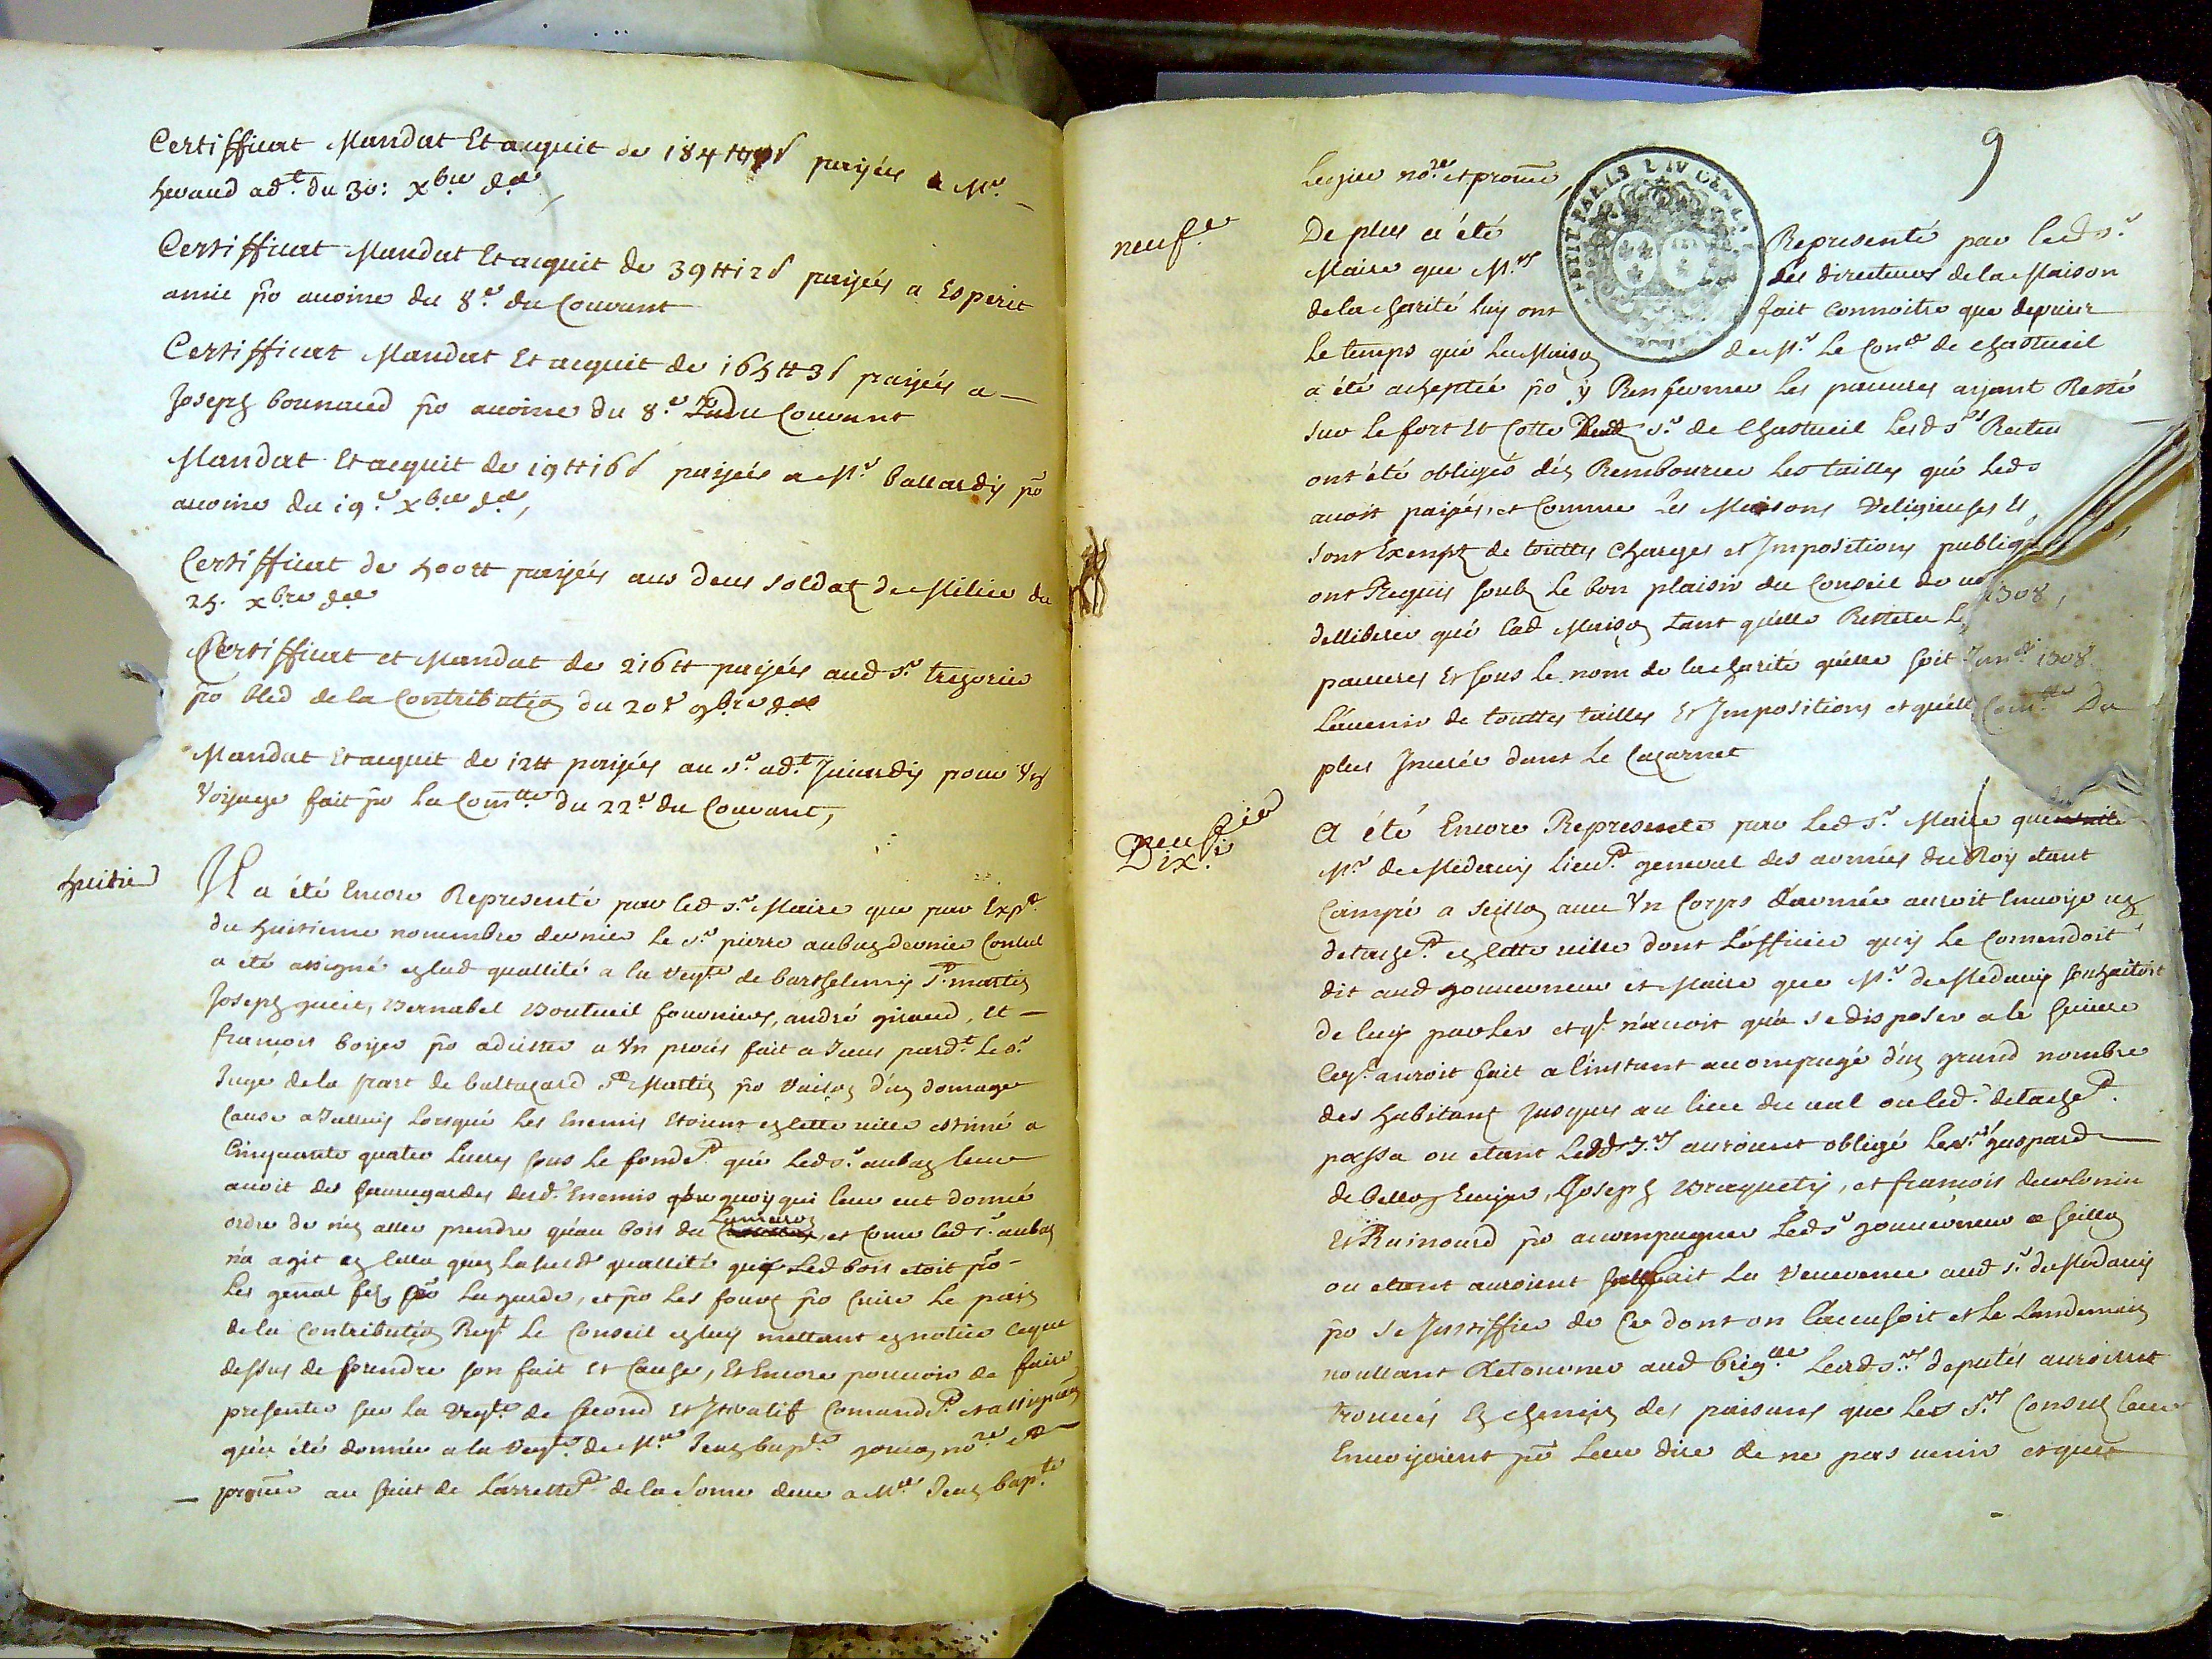 Certifficat Mandat Et acquit de 184 tt payées a Mr.
heraud adt. du 30: xbre d.e,
Certifficat Mandat Et acquit de 39 tt 12 s payées a Esperit
amic po avoine du 8.e du Courant
Certifficat Mandat Et acquit de 165 tt 3 s payées a
Joseph bounaud po avoine du 8.e du Courant
Mandat Et acquit de 19 tt 16 s payées a Mr. ballardy po
avoine du 19.e xbre d.e,
Certifficat de 400 tt payées aus deus soldatz de Milice du
25. xbre d.e
Certifficat et Mandat de 216 tt payées aud sr. tresorier
po bled de la Contribution du 20e 9bre d.e
Mandat Et acquit de 12 tt payées au sr. adt. Juiurdy pour Vn
Voyage fait po la Comtte du 22.e du Courant,
huitie
Il a été Encore Representé par led sr. Maire que par Expt.
du huitieme novembre dernier le sr. pierre auban dernier Consul
a été assigné en lad quallité a la reqte de barthelemy St. martin
Joseph gueit, Bernabel Boutueil fourniers, andré giraud, et
francois boyer po adsister a Vn procés fait a Jceus pardt. le sr.
Juge de la part de baltazard St. Martin po raison d'un domage
Cause a Jalluy lorsque les Enemis Etoient en cette ville estimé a
Cinquante quatre livres sous le fondet. que led sr. auban leur
avoit des sauvegardes desd. Enemis quoy qui leur eut donné
ordre de n'en aller prendre qu'au bois du Lameron et Come led sr. auban
n'a agit en cella qu'en lasusd quallité que led bois etoit po
les genal fes po la garde, et po les fours po Cuire le pain
de la Contribution Reqt. le Conseil en luy mettant en notice ceque
dessus de prendre son fait et Cause, Et Encore pouvoir de faire
presenter sur la reqte. de second Et Jteratif Comandt. et assignaon
qu'a été donnée a la reqte. de Mre Jean bapte. no.re et
procur au sujet de l'arrettt. de la Some deue a Mre Jean bapte
9
no.re et procur
neufe
De plus a été Representé par led sr.
Maire que Mrs les directeurs de la Maison
de la charité luy ont fait connoitre que depuis
le temps que la Maison de Mr. le Conr de chasteuil
a été acheptée po y Renfermer les pauvres ayant Resté
sur le fort et Cotte dud sr. de Chasteuil lesd srs Recteu
ont été obligés de Rembourser les tailles que led s
avoit payés, et Comme les Maisons Religieuses Et
sont Exempz de touttes Charges et Jmpositions publiq
ont Requis soubz le bon plaisir du Conseil de
dellibérer que lad Maison tant qu'elle Restera
pauvres Et sous le nom de la charité qu'elle soit
l'avenir de touttes tailles Et Jmpositions et qu'ell
plus Jncerée dans le Cazarnet
1308,
1308
Du
neufie
Dix.e
a été Encore Representé par led sr. Maire que
Mr. de Medavy lieut. general des armées du Roy etant
Campé a seillon avec Vn Corps d'armée auroit Envoyé un
detacht. en cette ville dont l'officier quy le Comendoit
dit aud gouverneur et Maire que Mr. de Medavy souhaitoit
de luy parler et qt. n'avoit qu'a se disposer a le suivre
auroit fait a l'instant acompagné d'un grand nombre
des habitans jusques au lieu du val ou led. detacht.
passa ou etant lesd srs auroient obligé les srs gaspard
de Cellon Ecuyer, Joseph Braquety, et francois decolonia
Et Rainoard po acompagner led sr gouverneur a seillon
ou etant auroient fait la reverence aud sr. de Medavy
po se Justiffier de Ce dont on l'acusoit et le landemain
voullant Retourner aud brigne lesd srs deputés auroient
trouvés en chemin des paisans que les srs Consulz leur
Envoyoient po leur dire de ne pas venir et que